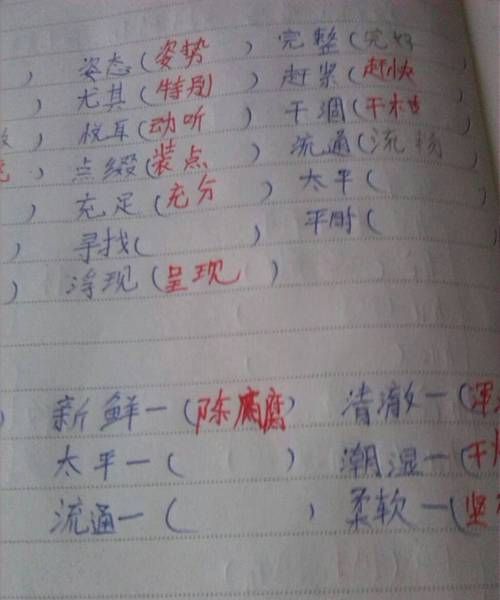 ) 姿态(姿势) 完整(完好
) 尤其(特别) 赶紧(赶快
) 悦耳(动听) 干涸(干枯
) 点缀(装点) 流通(流畅
) 充足(充分) 太平( )
) 寻找( ) 平时( )
) 浮现(呈现)
) 新鲜一(陈腐) 清澈一(浑
太平一( ) 潮湿一(干
流通一( ) 柔软一(坚